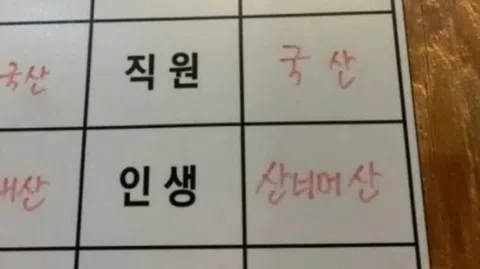 국산 직원 국산
인생 산너머산